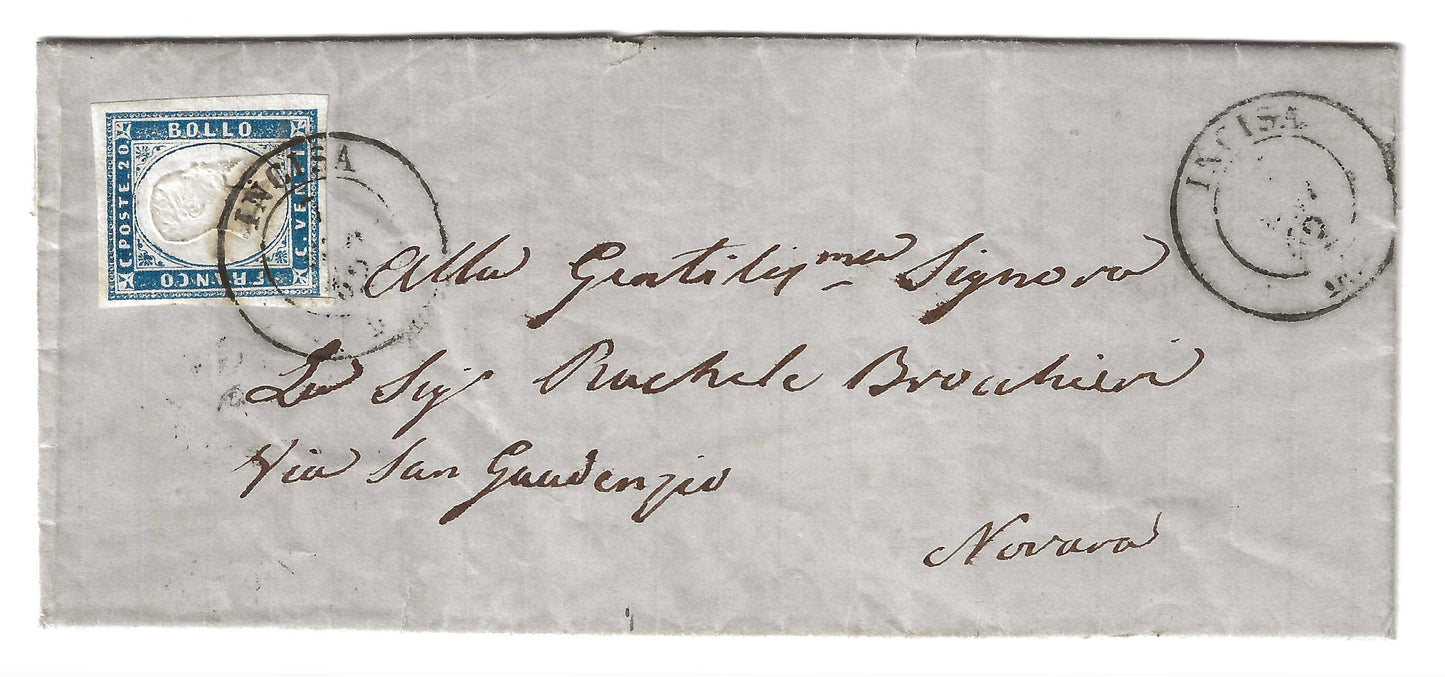 BOLLO
C. POSTE. 20
C. VENTI
FRANCO
INCISA
INCISA
Alla Gentilis.ma Signora
La Sig.ra Rachele Brochieri
Via San Gaudenzio
Novara